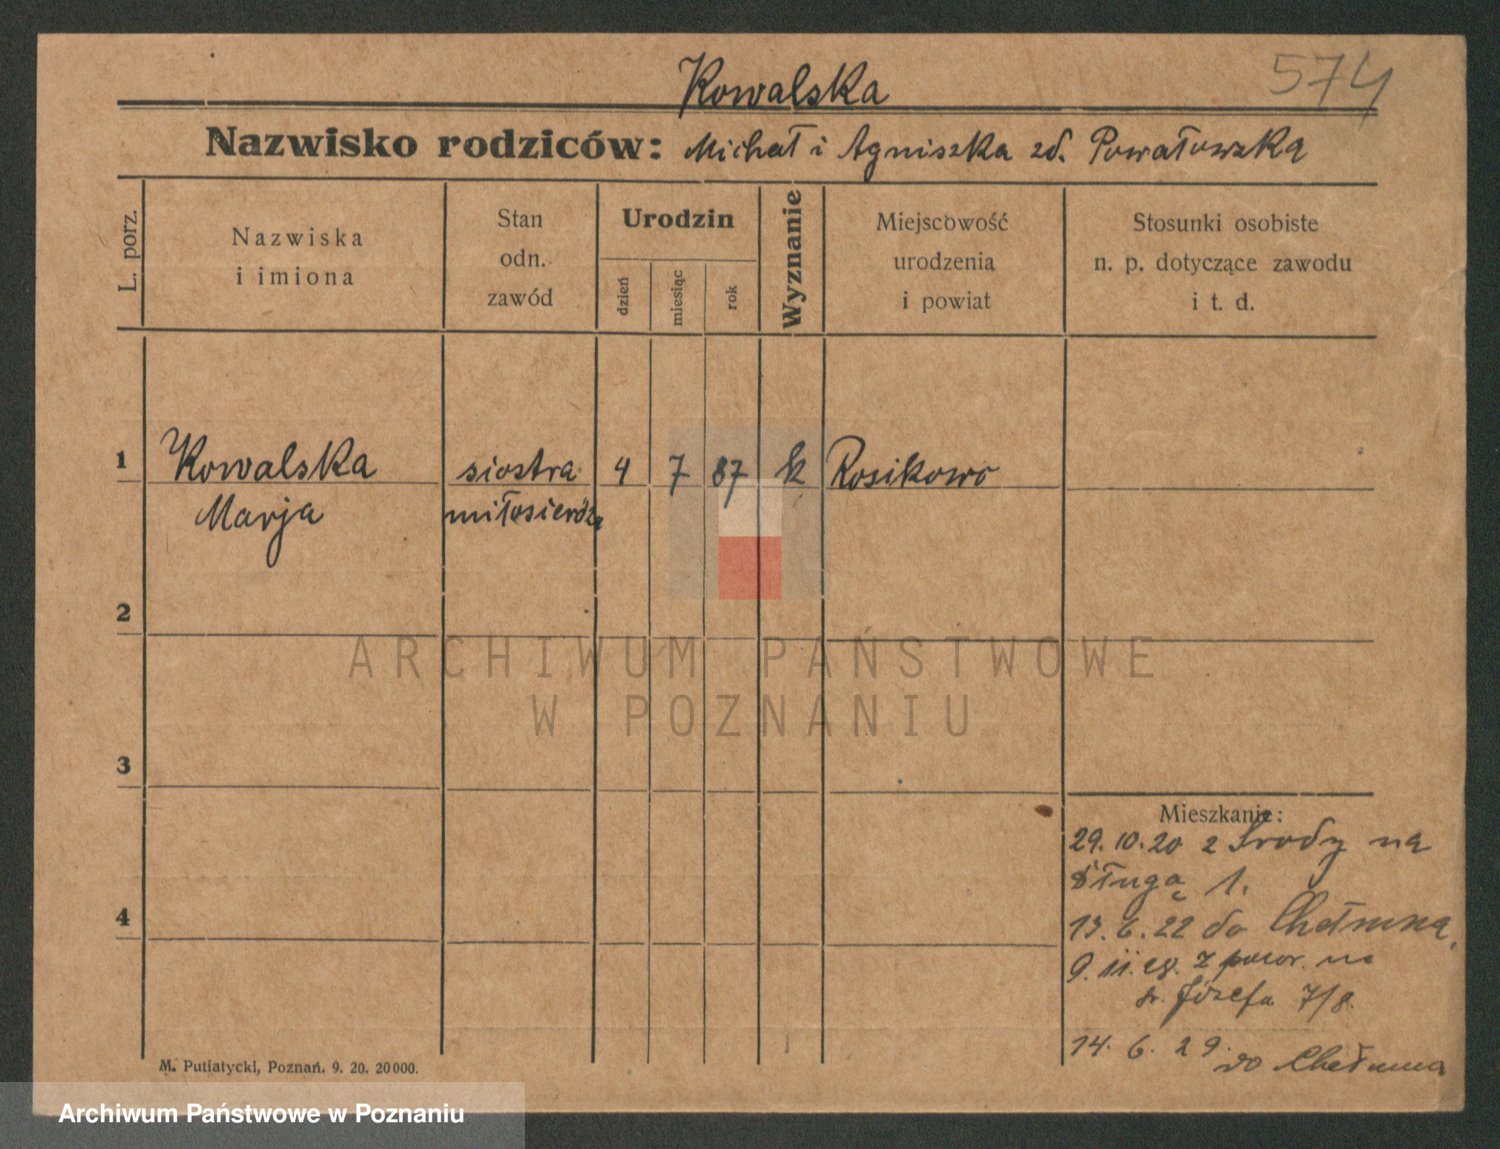 Kowalska
574
Nazwisko rodziców: Michał i Agniszka zd. Powałowzka
L. porz.
Nazwiska
i imiona
Stan
odn.
zawód
Urodzin
dzień
miesiąc
rok
Wyznanie
Miejscowość
urodzenia
i powiat
Stosunki osobiste
n. p. dotyczące zawodu
i t. d.
1 Kowalska siostra 4 7 87 k Rosikowo
Marja miłosierdza
2
ARCHIWUM PAŃSTWOWE
W POZNANIU
3
Mieszkanie:
29. 10. 20 z Środy na
długą 1.
4
13. 6. 22 do Chełmna,
9. 11. 28. z powr. na
św. Józefa 7/8.
14. 6. 29. do Chełmna
M. Putiatycki, Poznań. 9. 20. 20000.
Archiwum Państwowe w Poznaniu